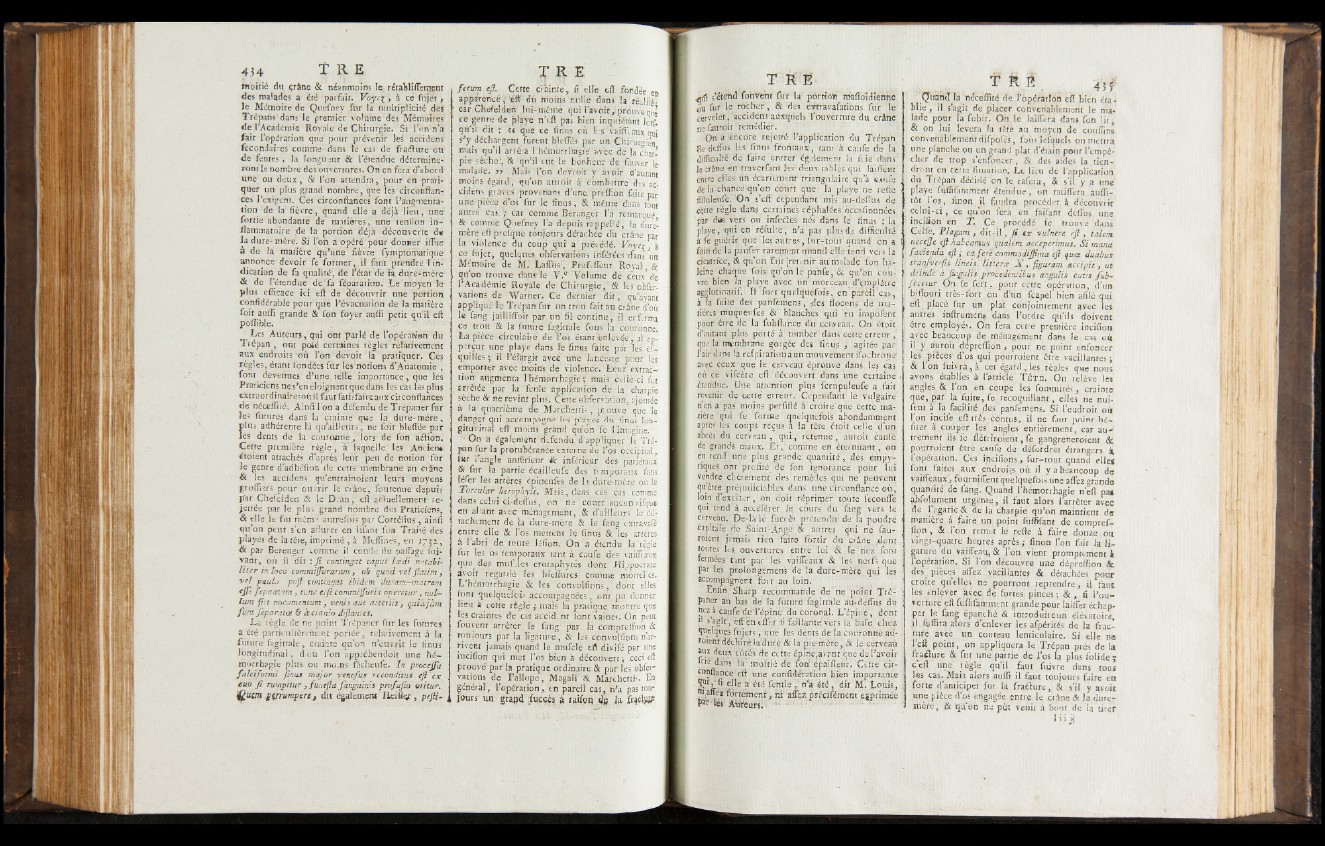 434 T R E
moitié du crâne & néanmoins le rétabliſſement
des malades a été parfait. Voyez, à ce ſujet,
le Mémoire de Queſney ſur la multiplicité des
Trépans dans le premier volume des Mémoires
de l'Académie Royale de Chirurgie. Si l'on n'a
fait l'opération que pour prévenir les accidens
ſecondaires comme dans le cas de fracture ou
de fentes, la longueur & l'étendue détermine-
ront le nombre des ouvertures. On en fera d'abord
une ou deux, & l'on attendra, pour en prati-
quer un plus grand nombre, que les circonſtan-
ces l'exigent. Ces circonſtances ſont l'augmenta-
tion de la fièvre, quand elle a déjà lieu, une
ſortie abondante de matières, une tenſion in-
flammatoire de la portion déjà découverte de
la dure-mère. Si l'on a opéré pour donner iſſue
à de la matière qu'une fièvre ſymptomatique
annonce devoir ſe former, il faut prendre l'in-
dication de ſa qualité, de l'état de la dure-mère
& de l'étendue de ſa ſéparation. Le moyen le
plus efficace ici eſt de découvrir une portion
conſidérable pour que l'évacuation de la matière
ſoit auſſi grande & ſon foyer auſſi petit qu'il eſt
poſſible.
Les Auteurs, qui ont parlé de l'opération du
Trépan, ont poſé certaines règles relativement
aux endroits où l'on devoit la pratiquer. Ces
règles, étant fondées ſur les notions d'Anatomie,
ſont devenues d'une telle importance, que les
Praticiens ne s'en éloignent que dans les cas les plus
extraordinaires où il faut ſatisfaire aux circonſtances
de néceſſité. Ainſi l'on a défendu de Trépaner ſur
les ſutures dans la crainte que la dure-mère,
plus adhérente là qu'ailleurs, ne ſoit bleſſée par
les dents de la couronne, lors de ſon action.
Cette première règle, à laquelle les Anciens
étoient attachés d'après leur peu de notion ſur
le genre d'adhéſion de cette membrane au crâne
& les accidens qu'entraînoient leurs moyens
groſſiers pour ouvrir le crâne, ſoutenue depuis
par Cheſelden & le Dran, eſt actuellement re-
jettée par le plus grand nombre des Praticiens,
& elle le fut même autrefois par Cortéſius, ainſi
qu'on peut s'en aſſurer en liſant ſon Traité des
playes de la tête, imprimé, à Meſſines, en 1732,
& par Berenger comme il conſte du paſſage ſui-
vant, où il dit : ſi contingat caput lædi notabi-
liter in loco commiſſurarum, & quod vel ſtatim,
vel paulo poſt contingat ibidem duram-matrem
eſſe ſeparatam, tunc eſſi commiſſuris operetur, nul-
lum fiet nocumentum, venis aut arteriis, quia jam
ſunt ſeparatæ & à cranio diſtantes.
La règle de ne point Trépaner ſur les ſutures
a été particulièrement portée, relativement à la
ſuture ſagittale, crainte qu'on n'ouvrit le ſinus
longitudinal, d'où l'on appréhendoit une hé-
morrhagie plus ou moins fâcheuſe. In proceſſu
falciformi ſinus major venoſus reconditus eſt ex
quo ſi rumpitur, funeſta ſanguinis profuſio oritur.
Quem perrumpere, dit également Heiſter, peſti-
T R E
ferum eſt. Cette crainte, ſi elle eſt fondée en
apparence, eſt du moins nulle dans la réalité,
car Cheſelden lui-même qui l'avoit, prouve que
ce genre de playe n'eſt pas bien inquiétant lorſ-
qu'il dit : « que ce ſinus où les vaiſſeaux qui
s'y déchargent furent bleſſés par un Chirurgien,
mais qu'il arrêta l'hémorrhagie avec de la char-
pie ſèche, & qu'il eut le bonheur de ſauver le
malade. » Mais l'on devroit y avoir d'autant
moins égard, qu'on auroit à combattre des ac-
cidens graves provenans d'une preſſion faite par
une pièce d'os ſur le ſinus, & même dans tout
autre cas ; car comme Béranger l'a remarqué,
& comme Queſney l'a depuis rappellé, la dure-
mère eſt preſque toujours détachée du crâne par
la violence du coup qui a précédé. Voyez, à
ce ſujet, quelques obſervations inſérées dans un
Mémoire de M. Laſſus, Profeſſeur Royal, &
qu'on trouve dans le V.e Volume de ceux de
l'Académie Royale de Chirurgie, & les obſer-
vations de Warner. Ce dernier dit, qu'ayant
appliqué le Trépan ſur un trou fait au crâne d'où
le ſang jailliſſoit par un fil continu, il enferma
ce trou & la ſuture ſagittale ſous la couronne.
La pièce circulaire de l'os étant enlevée, il ap-
perçut une playe dans le ſinus faite par les eſ-
quilles ; il l'élargit avec une lancette pour les
emporter avec moins de violence. Leur extrac-
tion augmenta l'hémorrhagie ; mais celle-ci fut
arrêtée par la ſeule application de la charpie
sèche & ne revint plus. Cette obſervation, ajoutée
à la quatrième de Marchettis, prouve que le
danger qui accompagne les playes du ſinus lon-
gitudinal eſt moins grand qu'on ſe l'imagine.
On a également défendu d'appliquer le Tré-
pan ſur la protubérance externe de l'os occipital,
ſur l'angle antérieur & inférieur des pariétaux
& ſur la partie écailleuſe des temporaux ſans
léſer les artères épineuſes de la dure-mère ou le
Torcular herophyli. Mais, dans ces cas comme
dans celui ci-deſſus, on ne court aucun riſque
en allant avec ménagement, & d'ailleurs le dé-
tachement de la dure-mère & le ſang extravaſé
entre elle & l'os mettent le ſinus & les artères
à l'abri de toute léſion. On a étendu la règle
ſur les os temporaux tant à cauſe des vaiſſeaux
que des muſcles crotaphytes dont Hippocrate
avoit regardé les bleſſures comme mortelles.
L'hémorrhagie & les convulſions, dont elles
ſont quelquefois accompagnées, ont pu donner
lieu à cette règle ; mais la pratique montre que
les craintes de cet accident ſont vaines. On peut
ſouvent arrêter le ſang par la compreſſion &
toujours par la ligature, & les convulſions n'ar-
rivent jamais quand le muſcle eſt diviſé par une
inciſion qui met l'os bien à découvert ; ceci eſt
prouvé par la pratique ordinaire & par les obſer-
vations de Fallope, Magati & Marchettis. En
général, l'opération, en pareil cas, n'a pas tou-
jours un grand ſuccès à raiſon de la fracture
T R E
qui s'étend ſouvent ſur la portion maſtoïdienne
ou ſur le rocher, & des extravaſations ſur le
cervelet, accidens auxquels l'ouverture du crâne
ne ſauroit remédier.
On a encore rejetté l'application du Trépan
au-deſſus les ſinus frontaux, tant à cauſe de la
difficulté de faire entrer également la ſcie dans
le crâne en traverſant les deux tables qui laiſſent
entre elles un écartement triangulaire qu'à cauſe
de la chance qu'on court que la playe ne reſte
fiſtuleuſe. On s'eſt cependant mis au-deſſus de
cette règle dans certaines céphalées occaſionnées
par des vers ou inſectes nés dans le ſinus : la
playe, qui en réſulte, n'a pas plus de difficulté
à ſe guérir que les autres, ſur-tout quand on a
ſoin de la panſer rarement quand elle tend vers la
cicatrice, & qu'on fait retenir au malade ſon ha-
leine chaque fois qu'on le panſe, & qu'on cou-
vre bien la playe avec un morceau d'emplâtre
agglutinatif. Il ſort quelquefois, en pareil cas,
à la ſuite des panſemens, des flocons de ma-
tières muqueuſes & blanches qui en impoſent
pour être de la ſubſtance du cerveau. On étoit
d'autant plus porté à tomber dans cette erreur,
que la membrane gorgée des ſinus, agitée par
l'air dans la reſpiration a un mouvement iſochrone
avec ceux que le cerveau éprouve dans les cas
où ce viſcère eſt découvert dans une certaine
étendue. Une attention plus ſcrupuleuſe a fait
revenir de cette erreur. Cependant le vulgaire
n'en a pas moins perſiſté à croire que cette ma-
tière qui ſe forme quelquefois abondamment
après les coups reçus à la tête étoit celle d'un
abcès du cerveau, qui, retenue, auroit cauſé
de grands maux. Et, comme en éternuant, on
en rend une plus grande quantité, des empy-
riques ont profité de ſon ignorance pour lui
vendre chèrement des remèdes qui ne peuvent
qu'être préjudiciables dans une circonſtance où,
loin d'exciter, on doit réprimer toute ſecouſſe
qui tend à accélérer le cours du ſang vers le
cerveau. De-là le ſuccès prétendu de la poudre
capitale de Saint-Ange & autres qui ne ſau-
roient jamais rien faire ſortir du crâne dont
toutes les ouvertures entre lui & le nez ſont
fermées tant par les vaiſſeaux & les nerfs que
par les prolongemens de la dure-mère qui les
accompagnent fort au loin.
Enfin Sharp recommande de ne point Tré-
paner au bas de la ſuture ſagittale au-deſſus du
nez à cauſe de l'épine du coronal. L'épine, dont
il s'agit, eſt en effet ſi ſaillante vers la baſe chez
quelques ſujets, que les dents de la couronne au-
roient déchiré la dure & la pie-mère, & le cerveau
aux deux côtés de cette épine, avant que de l'avoir
ſcié dans la moitié de ſon épaiſſeur. Cette cir-
conſtance eſt une conſidération bien importante
qui, ſi elle a été ſentie, n'a été, dit M. Louis,
ni aſſez fortement, ni aſſez préciſément exprimée
par les Auteurs.
T R E 435
Quand la néceſſité de l'opération eſt bien éta-
blie, il s'agit de placer convenablement le ma-
lade pour la ſubir. On le laiſſera dans ſon lit,
& on lui levera la tête au moyen de couſſins
convenablement diſpoſés, ſous leſquels on mettra
une planche ou un grand plat d'étain pour l'empê-
cher de trop s'enfoncer, & des aides la tien-
dront en cette ſituation. Le lieu de l'application
du Trépan décidé on le raſera, & s'il y a une
playe ſuffiſamment étendue, on ratiſſera auſſi-
tôt l'os, ſinon il faudra procéder à découvrir
celui-ci, ce qu'on fera en faiſant deſſus une
inciſion en T. Ce procédé ſe trouve dans
Celſe. Plagam, dit-il, ſi ex vulnere eſt, talem
neceſſe eſt habeamus qualem acceperimus. Si manu
facienda eſt, ea ferè commodiſſima eſt quæ duabus
tranſverſis lineis litteræ X, figuram accipit, ut
deinde à ſingulis procedentibus angulis cutis ſub-
ſecetur. On ſe ſert, pour cette opération, d'un
biſtouri très-fort ou d'un ſcapel bien afilé qui
eſt placé ſur un plat conjointement avec les
autres inſtrumens dans l'ordre qu'ils doivent
être employés. On fera cette première inciſion
avec beaucoup de ménagement dans le cas où
il y auroit dépreſſion, pour ne point enfoncer
les pièces d'os qui pourroient être vacillantes ;
& l'on ſuivra, à cet égard, les règles que nous
avons établies à l'article TÊTE. On relève les
angles & l'on en coupe les ſommités, crainte
que, par la ſuite, ſe recoquillant, elles ne nui-
ſent à la facilité des panſemens. Si l'endroit où
l'on incife eſt très contus, il ne faut point hé-
ſiter à couper les angles entièrement, car au-
trement ils ſe flétriroient, ſe gangreneroient &
pourroient être cauſe de déſordres étrangers à
l'opération. Ces inciſions, ſur-tout quand elles
ſont faites aux endroits où il y a beaucoup de
vaiſſeaux, fourniſſent quelquefois une aſſez grande
quantité de ſang. Quand l'hémorrhagie n'eſt pas
abſolument urgente, il faut alors l'arrêter avec
de l'agaric & de la charpie qu'on maintient de
manière à faire un point ſuffiſant de compreſ-
ſion, & l'on remet le reſte à faire douze ou
vingt-quatre heures après ; ſinon l'on fait la li-
gature du vaiſſeau, & l'on vient promptement à
l'opération. Si l'on découvre une dépreſſion &
des pièces aſſez vacillantes & détachées pour
croire qu'elles ne pourront reprendre, il faut
les enlever avec de fortes pinces ; &, ſi l'ou-
verture eſt ſuffiſamment grande pour laiſſer échap-
per le ſang épanché & introduire un élévatoire,
il ſuffira alors d'enlever les aſpérités de la frac-
ture avec un couteau lenticulaire. Si elle ne
l'eſt point, on appliquera le Trépan près de la
fracture & ſur une partie de l'os la plus ſolide ;
c'eſt une règle qu'il faut ſuivre dans tous
les cas. Mais alors auſſi il faut toujours faire en
ſorte d'anticiper ſur la fracture, & s'il y avoit
une pièce d'os engagée entre le crâne & la dure-
mère, & qu'on ne pût venir à bout de la tirer
I i i ij